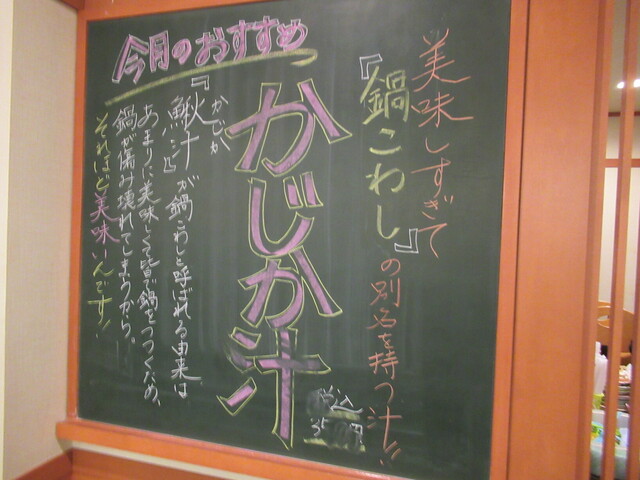 今月のおすすめ
美味しすぎて
『鍋こわし』の別名を持つ汁!!
かじか汁
税込
かじか
『鰍汁』が鍋こわしと呼ばれる由来は
あまりに美味しくて皆で鍋をつつくため、
鍋が傷み壊れてしまうから。
それほど美味いんです!